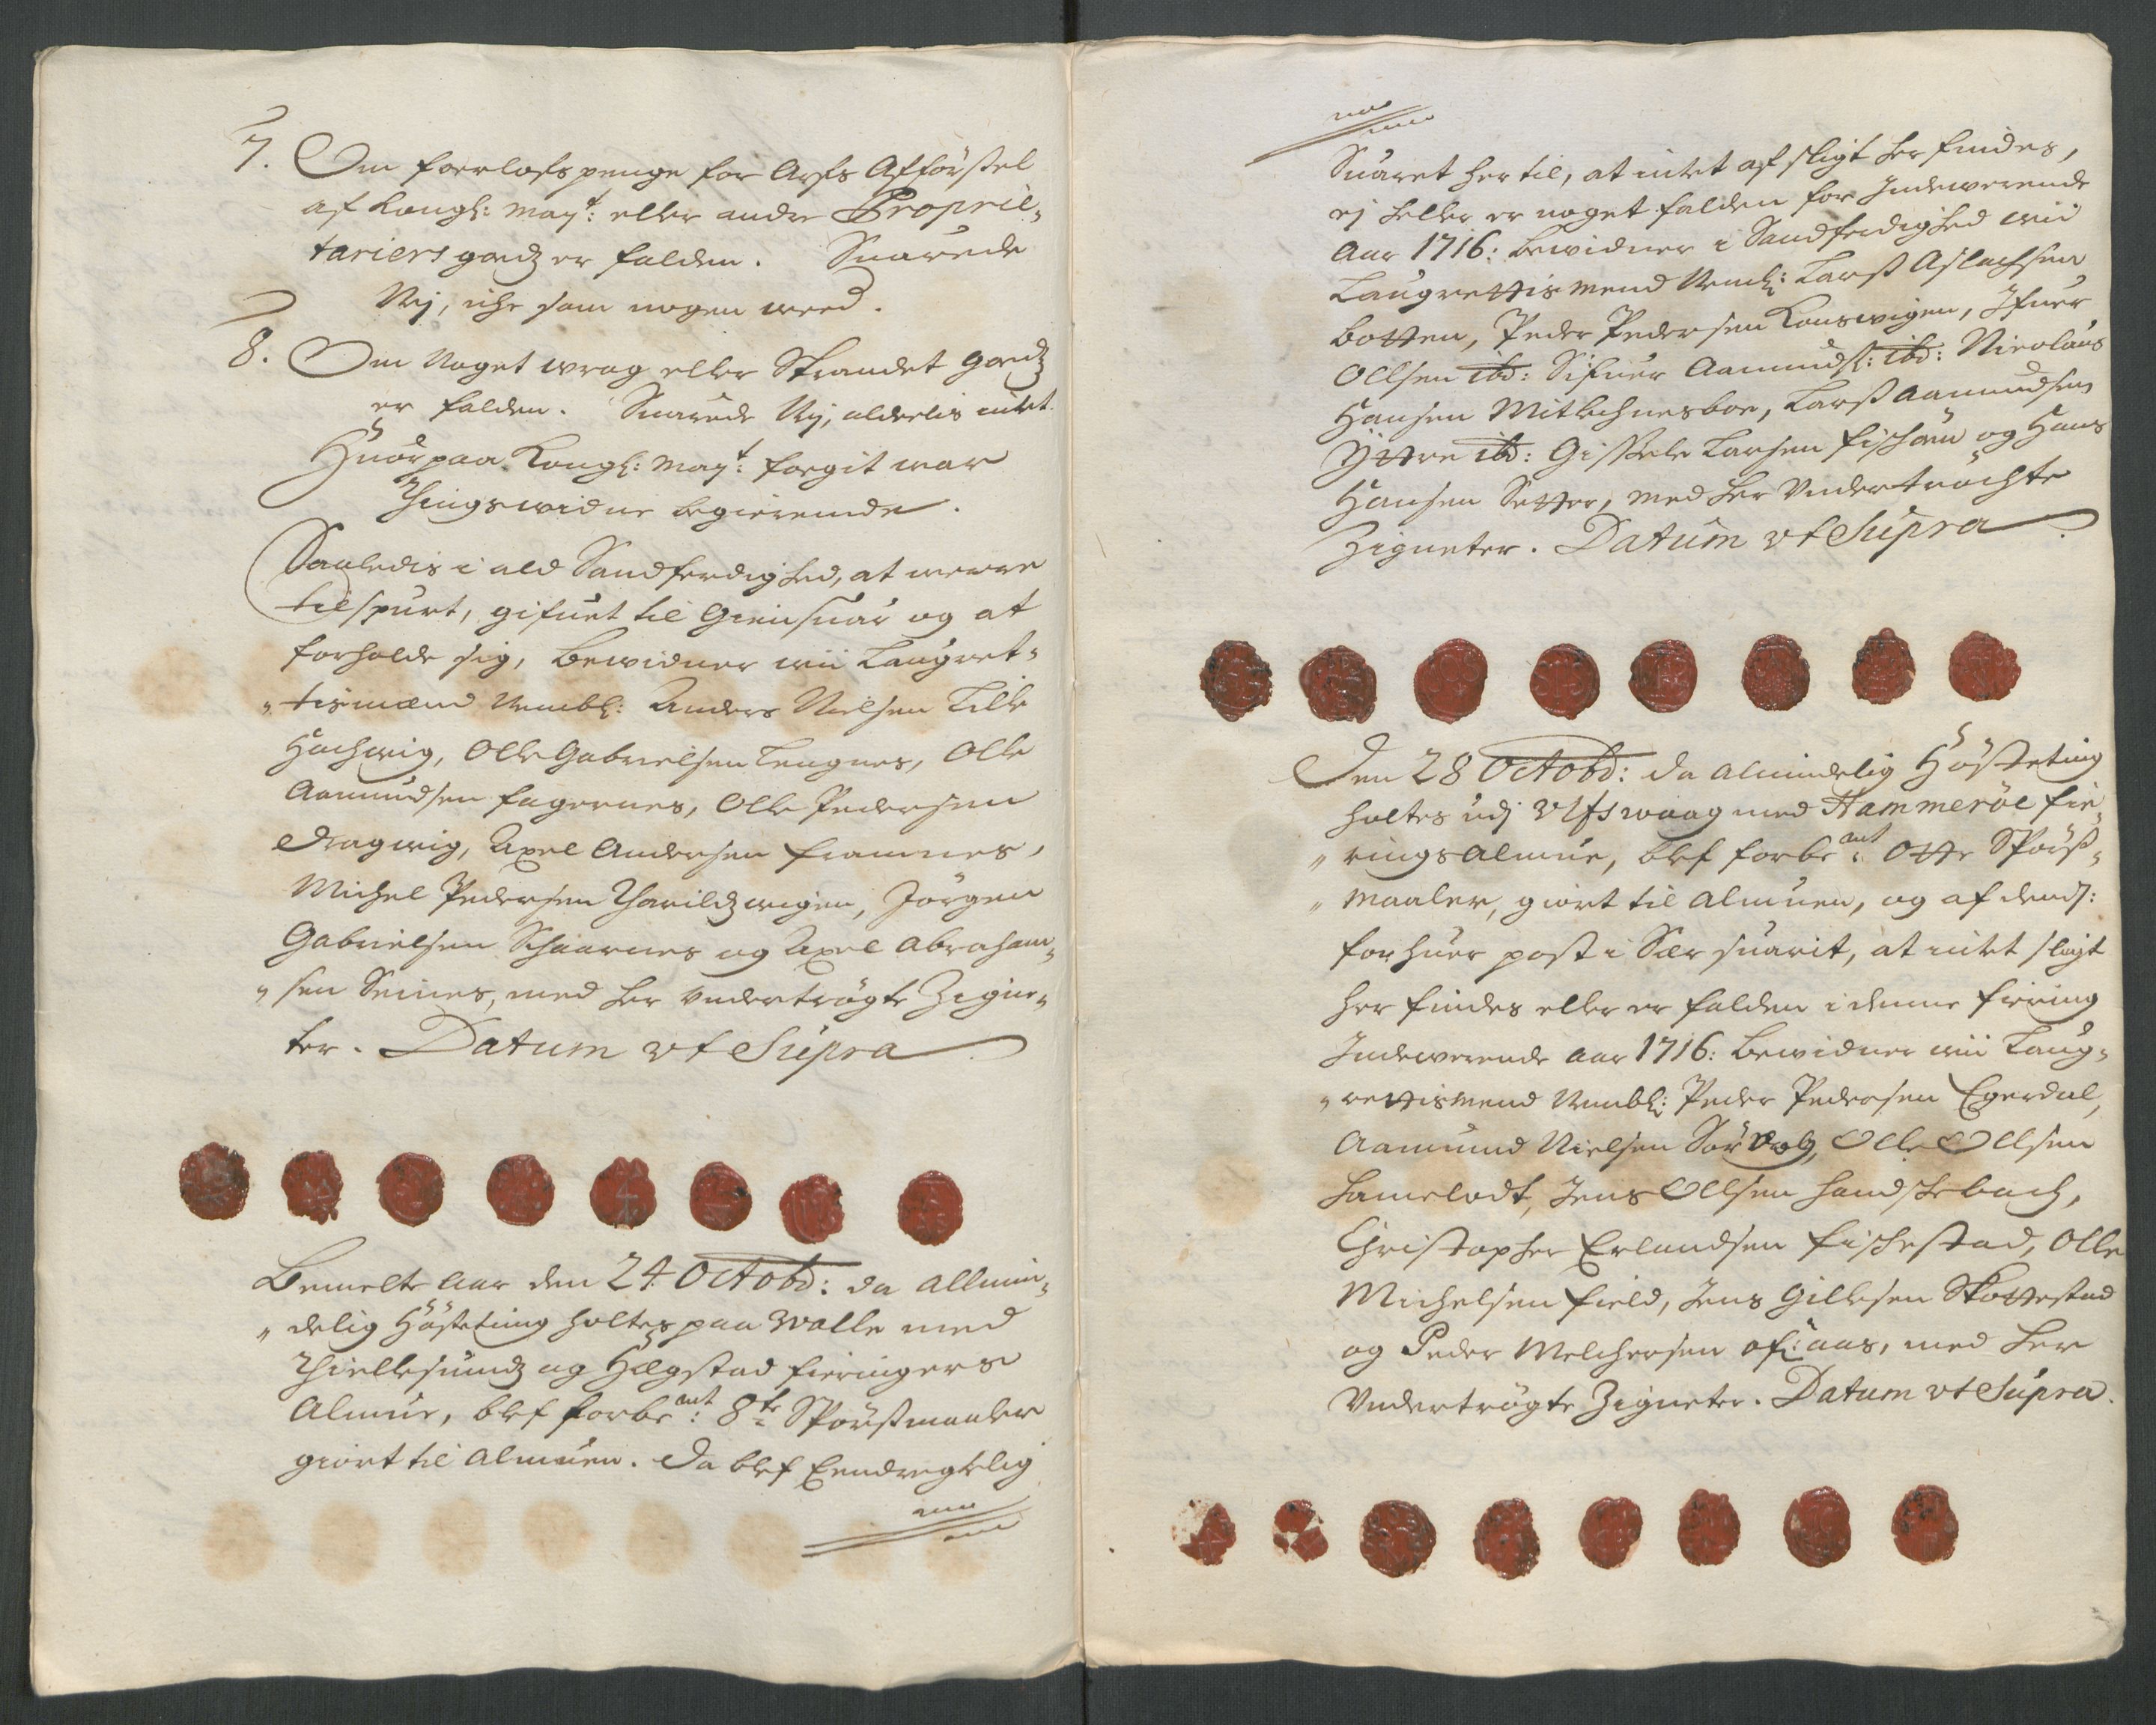 7. Om foerlofs penge for Arfs Afförsel
af Kongl: May.t: eller andre Proprie-
tariers godz er falden. Suarede
Nej, iche som nogen weed.
8. Om Noget wrag eller Strandet godz
er falden. Suarede Nej, alderlis intet.
Huorpaa Kongl: May.t: foegit war
Thingswidne begierende.
Saaledis i ald Sandferdighed, at werre
tilspurt, gifuet til Giensuar og at
forholde sig, Bewidner wii Laugret-
tismænd Nembl: Anders Nielsen Lille
Hochwig, Olle Gabrielsen Lengnes, Olle
Aamundsen fagernes, Olle Pedersen
Dragwig, Axel Andersen framnes,
Michel Pedersen Tharildzwigen, Jörgen
Gabrielsen Schaarnes og Axel Abraham-
sen Seines, med her undertrögte Zigne-
ter. Datum ut Supra
Bemelte Aar den 24 Octobr: da allmin-
delig Hösteting holtes paa Walle med
Thiellesundz og Hægstad fieringers
Almue, blef forbemt: 8te Spörsmaaler
giort til Almuen. Da blef Eendregtelig
Suaret her til, at intet af sligt her findes,
ej heller er noget falden for Indewerende
Aar 1716: bewidner i Sandferdighed wii
Laugrettismend Neml: Larss Aslachsen
botten, Peder Pedersen Kongswigen, Ifuer
Ollsen ibd: Sifuer Aamunds: ibd: Nicolaus
Hansen Mitlechnesboe, Larss Aamundsen
Yttre ibd: Gissele Larsen fischöen og Hans
Hansen Setter, med her Undertröchte
Zigneter. Datum ut Supra
Den 28 Octobr: da Almindelig Hösteting
holtes udj Ulfswaag med Hammeröe fie-
rings Almue, blef forbemt: Otte Spörss-
maaler, giort til Almuen, og af dends:
for huer post i Sær suarit, at intet sligt
her findes eller er falden i denne fiering
Indewerende Aar 1716: Bewidner wii Laug-
rettismend Nembl: Peder Pedersen Egerdal,
Aamund Nielsen Sör, Olle Ollsen
hamelodt, Jens Ollsen handschebach,
Christopher Erlandsen fischestad, Olle
Michelsen field, Jens Gillesen Skottestad
og Peder Melchersen ofl: aas, med her
Undertrögte Zigneter. Datum ut Supra.